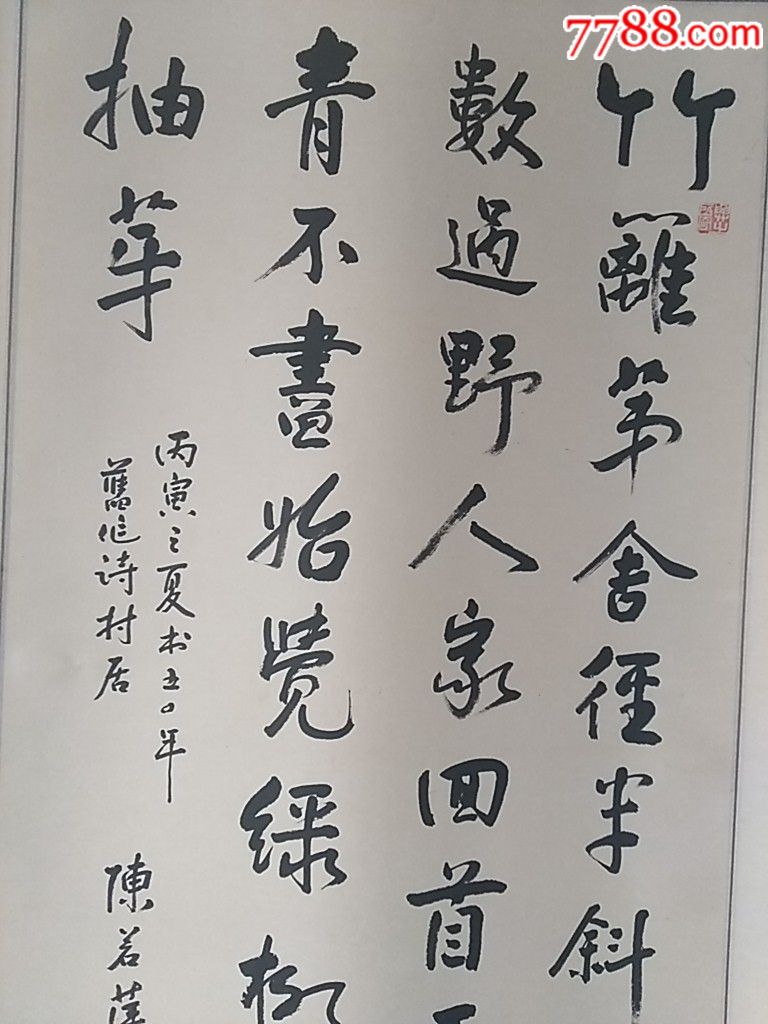 7788.com
竹籬茅舍徑半斜
數過野人家回首
青不盡始覺綠柳
抽芽
丙寅之夏书五〇年
舊作诗村居
陳若